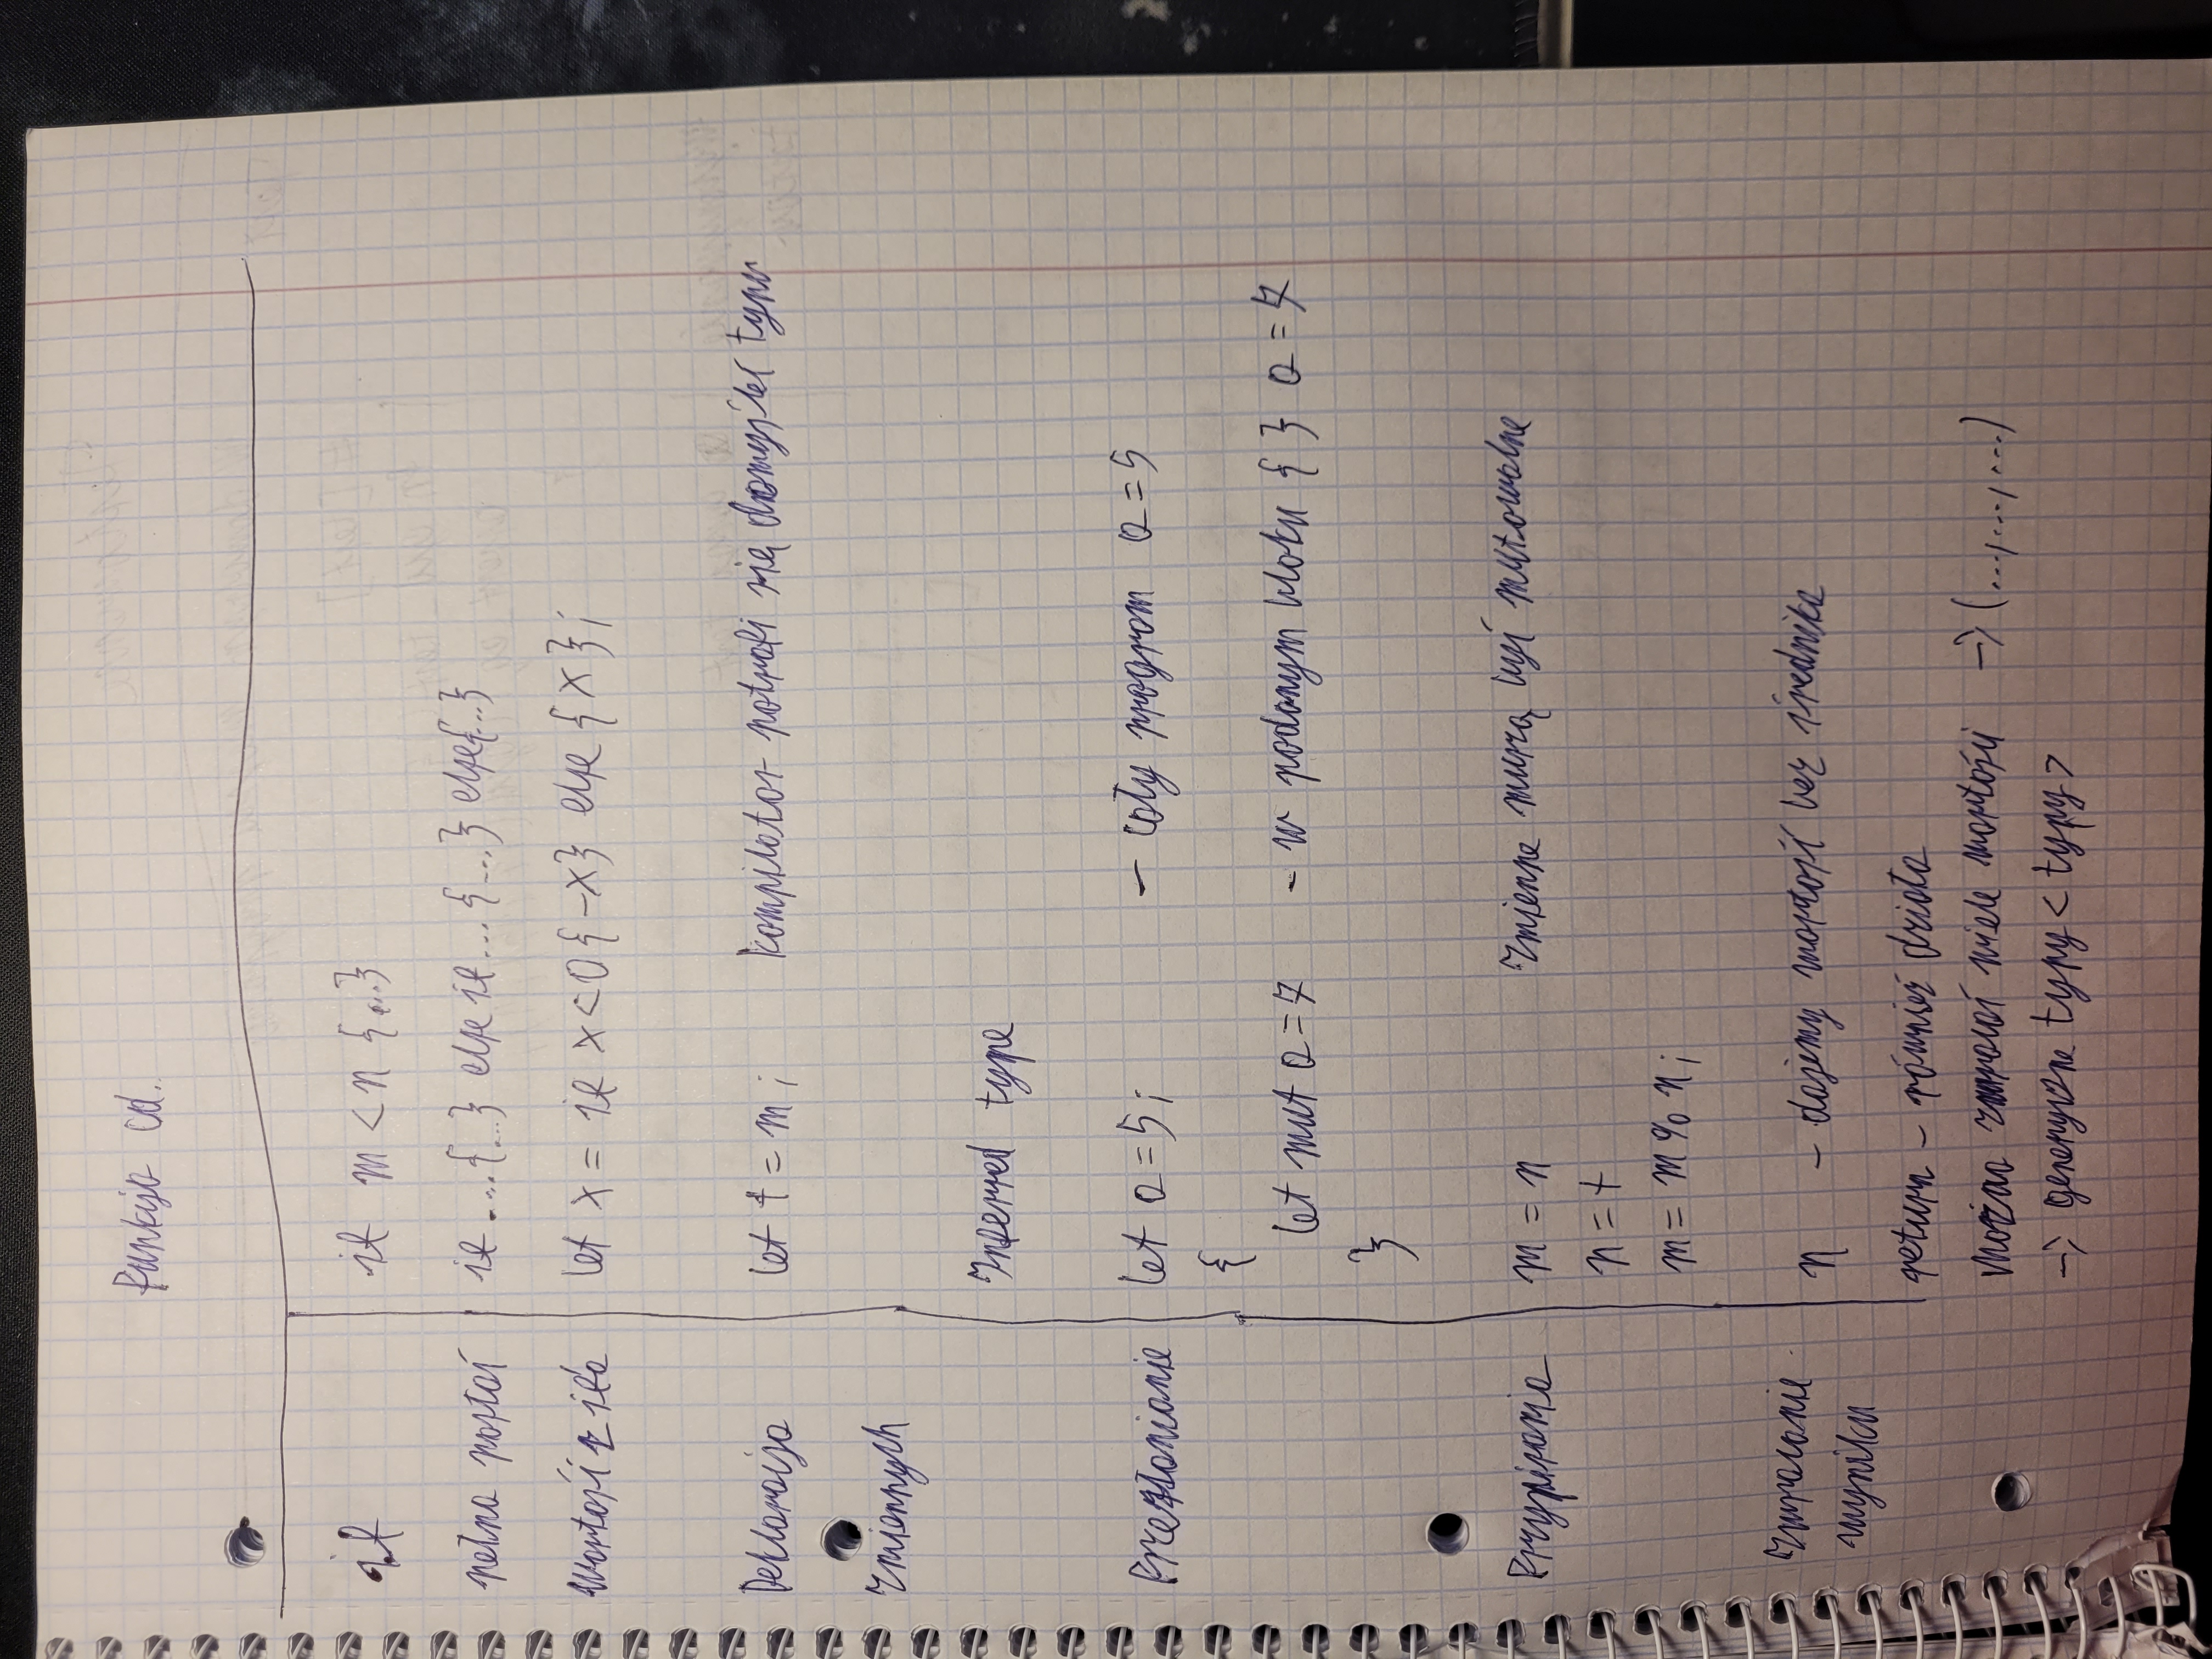 Funkcja cd.
if if m < n {...}
pełna postać if ....{...} else if ...{...} else{...}
Wartość z if'a let x = if x<0{-x} else {x};
Deklaracja let t = m; Kompilator potrafi się domyśleć typu
zmiennych
Inferred type
Przesłanianie let a = 5; - cały program a = 5
{
let mut a = 7 - w podanym bloku { } a = 7
}
Przypisania m = n Zmienne muszą być mutowalne
n = t
m = m % n;
Zwracanie
n - dajemy wartość bez średnika
wyniku
return - również działa
Można zwracać wiele wartości -> (...,...,...)
-> generyczne typy < typy >